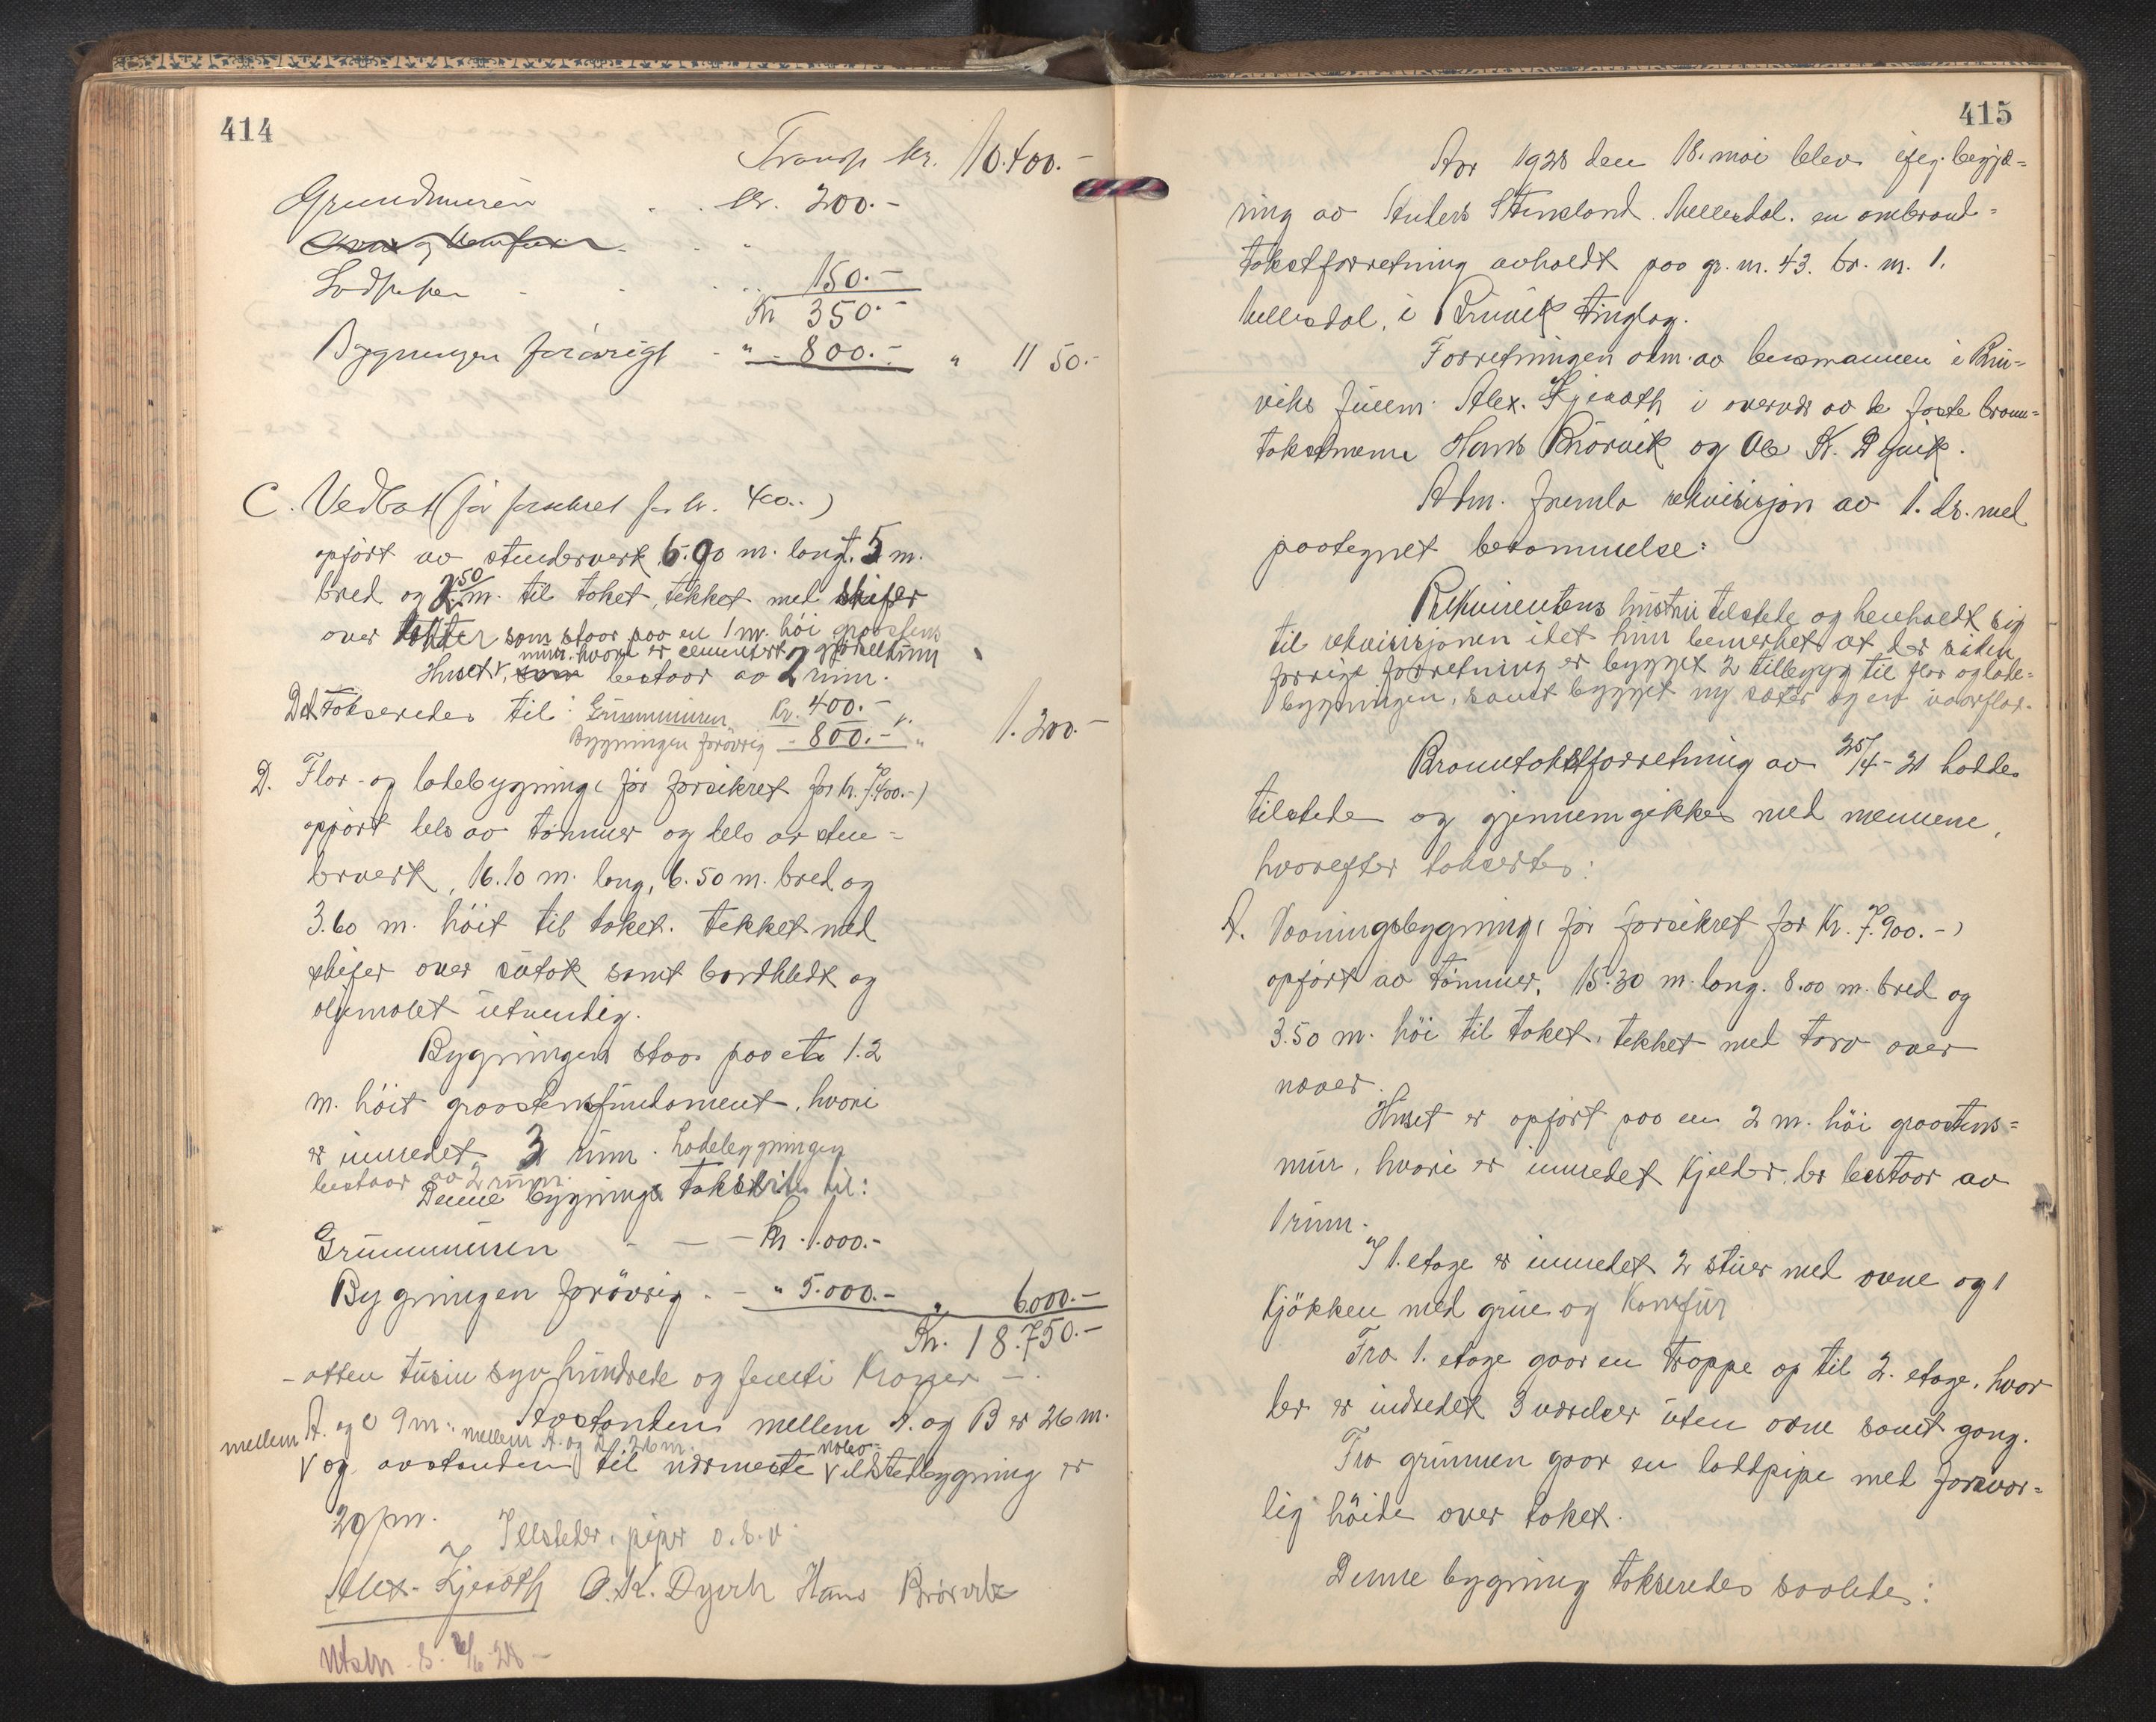 414
Transp kr. 10.400.-
Grundmuren . . kr. 200.-
Lodpipen - . . .. 150.-
Kr 350.-
Bygningen forövrigt - " - 800.- " 1150.-
C. Vedbod (för forsikret for kr. 400..)
opfört av stenderverk 6.90 m. langt. 5 m.
bred og 2.50 m. til taket, tekket med skifer
over som staar paa en 1 m. höi graastens
mur. hvori er cementert og gjödselrum
Huset bestaar av 2 rum.
Det takseredes til: Grunmuren Kr. 400.-
Bygningen forövrig - 800.- " 1.200.-
D. Flor- og ladebygning (för forsikret for kr. 7.400.-)
opfört dels av tømmer og dels av sten=
derverk, 16.10 m. lang, 6.50 m. bred og
3.60 m. höit til taket. Tekket med
skifer over sutak samt bordklædt og
oljemalet utvendig.
Bygningen staar paa et 1.2
m. höit graastensfundament, hvori
er innredet 3 rum. Ladebygningen
bestaar av 2 rum.
Denne bygning til:
Grunnmuren - — - Kr. 1.000.-
Bygningen forövrig. - " 5.000.- " 6.000.-
Kr. 18.750.-
- atten tusin syv hundrede og femti Kroner —.
Avstanden mellem A. og B er 26 m.
mellem A. og C 9 m. mellem A. og D. 26 m.
og avstanden til nærmeste nabo= ildstedbygning er
20 m.
Ildsteder, piper o.s.v.
Alex. Kjeaath O.K. Dyvik Hans Brörvik
Utskr. S. 2/6-28 -
415
Aar 1928 den 18. mai blev efter begjæ=
ring av Anders Steinsland Hellesdal. en ombrand=
takstforretning avholdt paa gr. nr. 43. br. nr. 1.
Hellesdal, i Bruvik tinglag.
Forretningen adm. av lensmannen i Bru=
vik Alex. i overvær av de faste brann=
takstmenn Hans Brörvik og Ole K. Dyvik.
Adm. fremla rekvisisjon av 1. ds. med
paategnet berammelse:
Rekvirentens hustru tilstede og henholdt sig
til rekvisisjonen idet hun bemerket at der siden
forrige forretning er bygget 2 tilbygg til flor og lade=
bygningen, samt bygget ny sæter og en vaarflor.
Branntakstforretning av 25/4-21 haddes
tilstede og gjennemgikkes med mennene,
hvorefter taksertes:
A. Vaaningsbygning (för forsikret for Kr. 7.900.-)
opfört av tömmer, 15.30 m. lang. 8.00 m. bred og
3.50 m. höi til taket, tekket med torv over
næver.
Huset er opfört paa en 2 m. höi graastens=
mur, hvori er innredet Kjelder, der bestaar av
1 rum.
I 1. etage er innredet 2 stuer med ovne og 1
Kjökken med grue og Komfur
Fra 1. etage gaar en trappe op til 2. etage, hvor
der er indredet 3 værelser uten ovne samt gang.
Fra grunnen gaar en loddpipe med forsvar=
lig höide over taket.
Denne bygning takseredes saaledes: